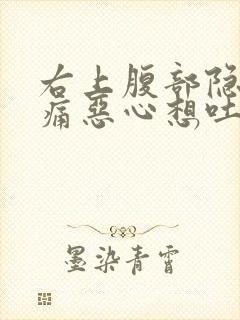 右上腹部隐
痛恶心想吐
墨染青霄